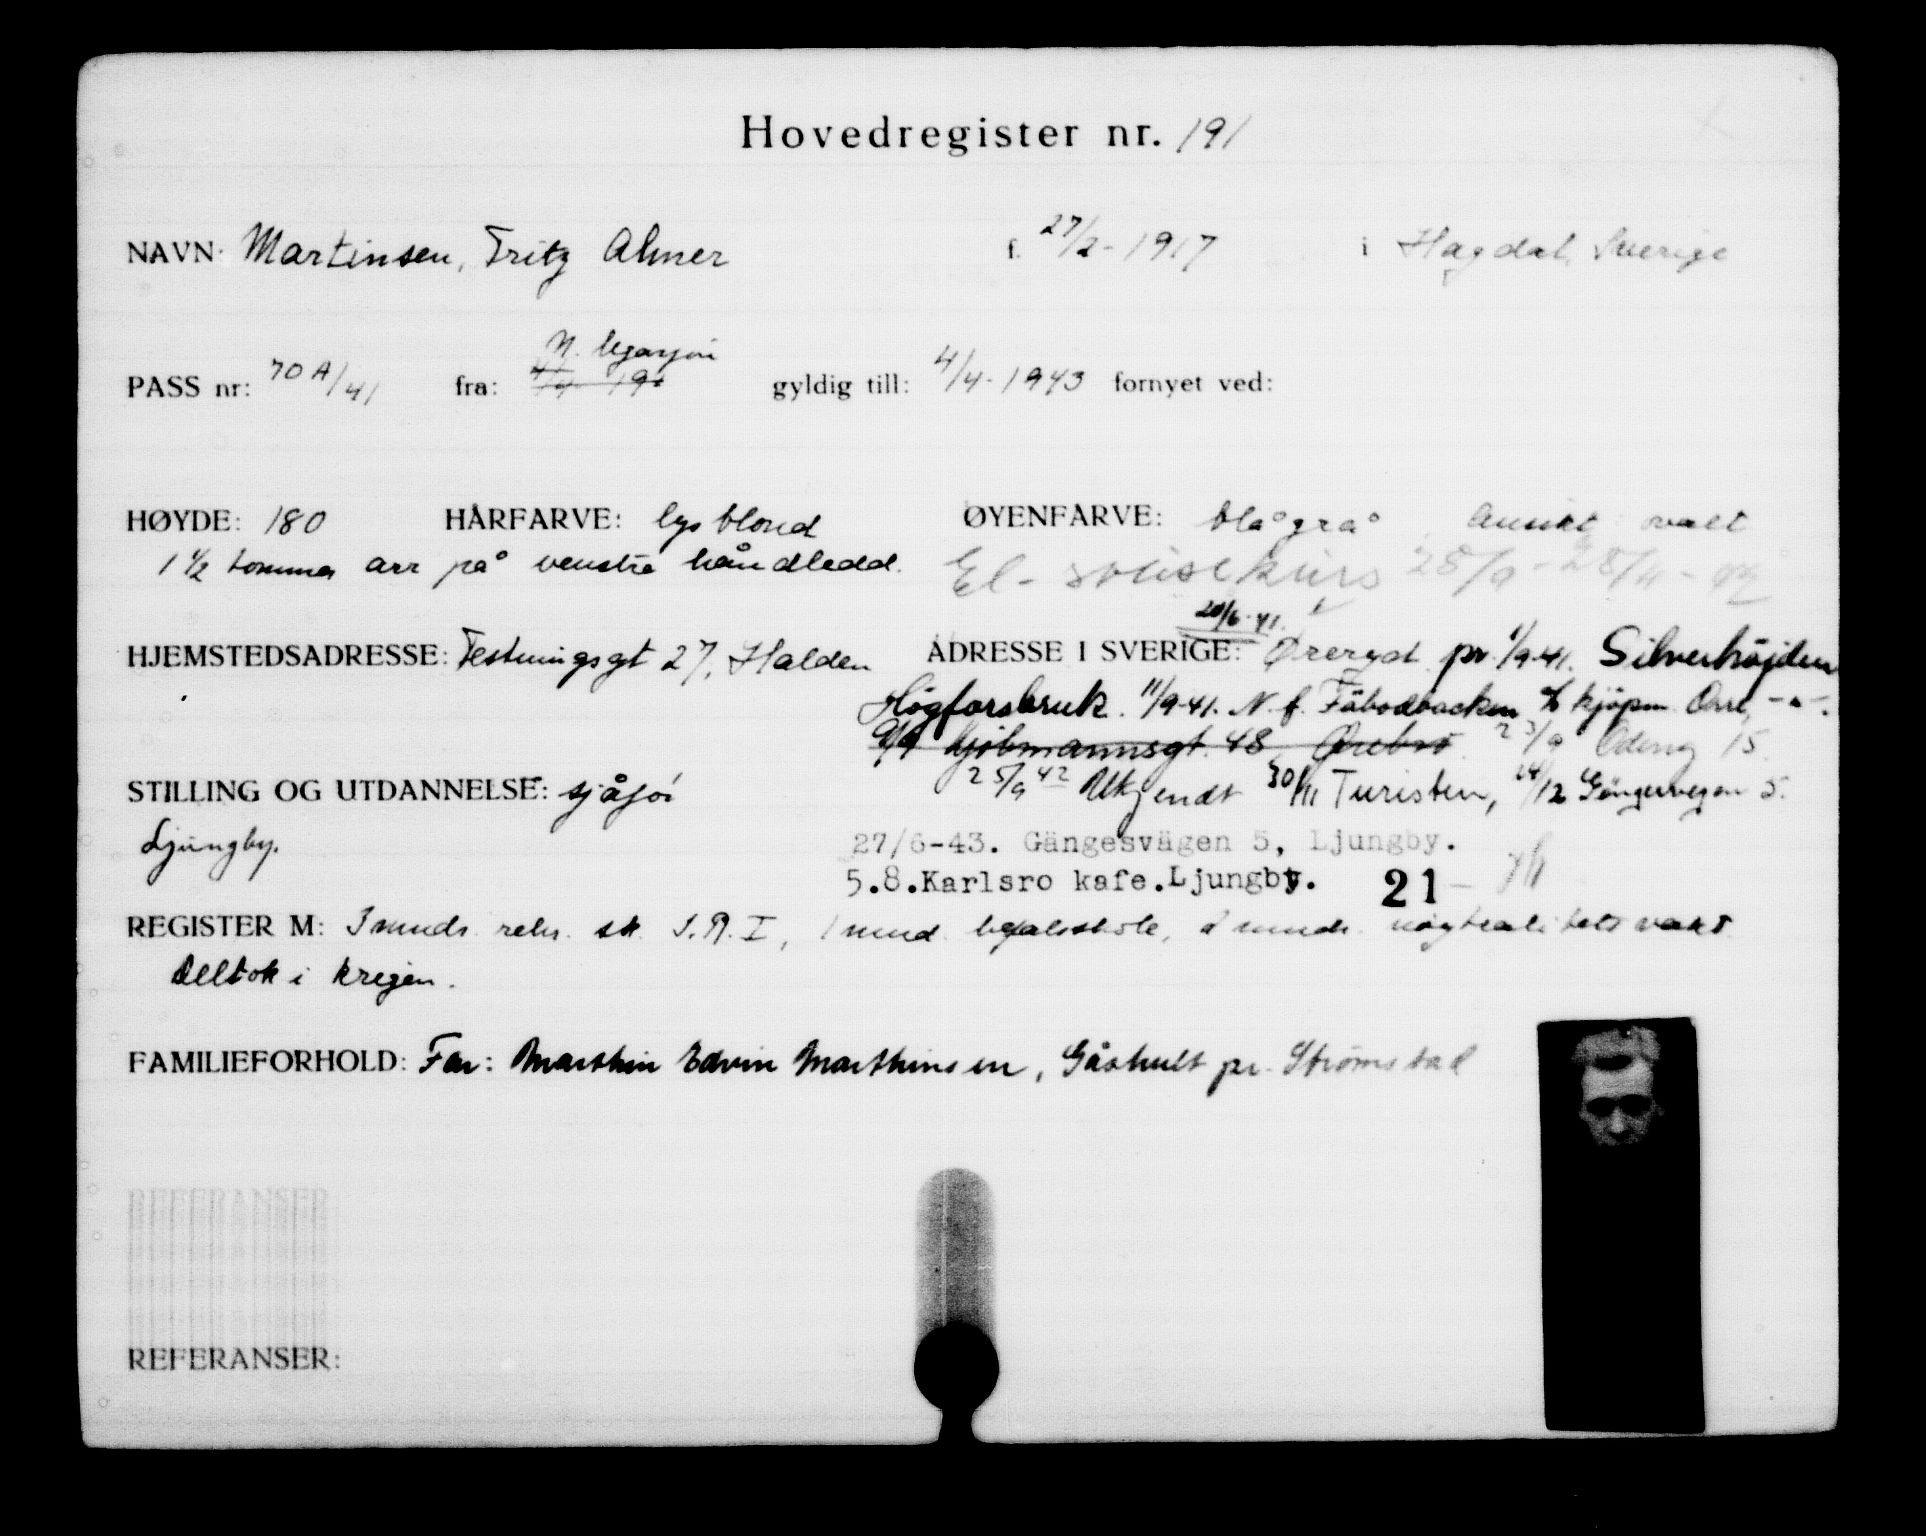 Hovedregister nr. 191
NAVN: Martinsen, Fritz Almer f. 27/2-1917 i Hagdal, Sverige
N. legasjon
PASS nr: 70 A/41 fra: gyldig till: 4/4-1943 fornyet ved:
HØYDE: 180 HÅRFARVE: lys blond ØYENFARVE: blågrå Ansikt ovalt
1 1/2 tommer arr på venstre håndledd. El- kurs 28/9-28/11-42
20/6-41.
HJEMSTEDSADRESSE: Festningsgt 27, Halden ADRESSE I SVERIGE: Öreryd pr. 1/9-41. Silverhöjden
Högforsbruk. 11/9-41. N.f. Fäbodbacken % kjöpm. -"-.
9/9 48 Örebro 23/9 15
25/9 42 Utkjendt 30/11 Turisten, 14/12 5.
STILLING OG UTDANNELSE: sjåfør
Ljungby.
27/6-43. Gängesvägen 5, Ljungby.
5.8.Karlsro kafe.Ljungby. 21-
REGISTER M: 3 mnds rekr. sk. I.R.I, 1 mnd. befalsskole, mnds nøytralitetsvakt
Deltok i krigen.
FAMILIEFORHOLD: Far: Marthin Edvin Marthinsen, Gåshult pr. Strömstad
REFERANSER
REFERANSER: